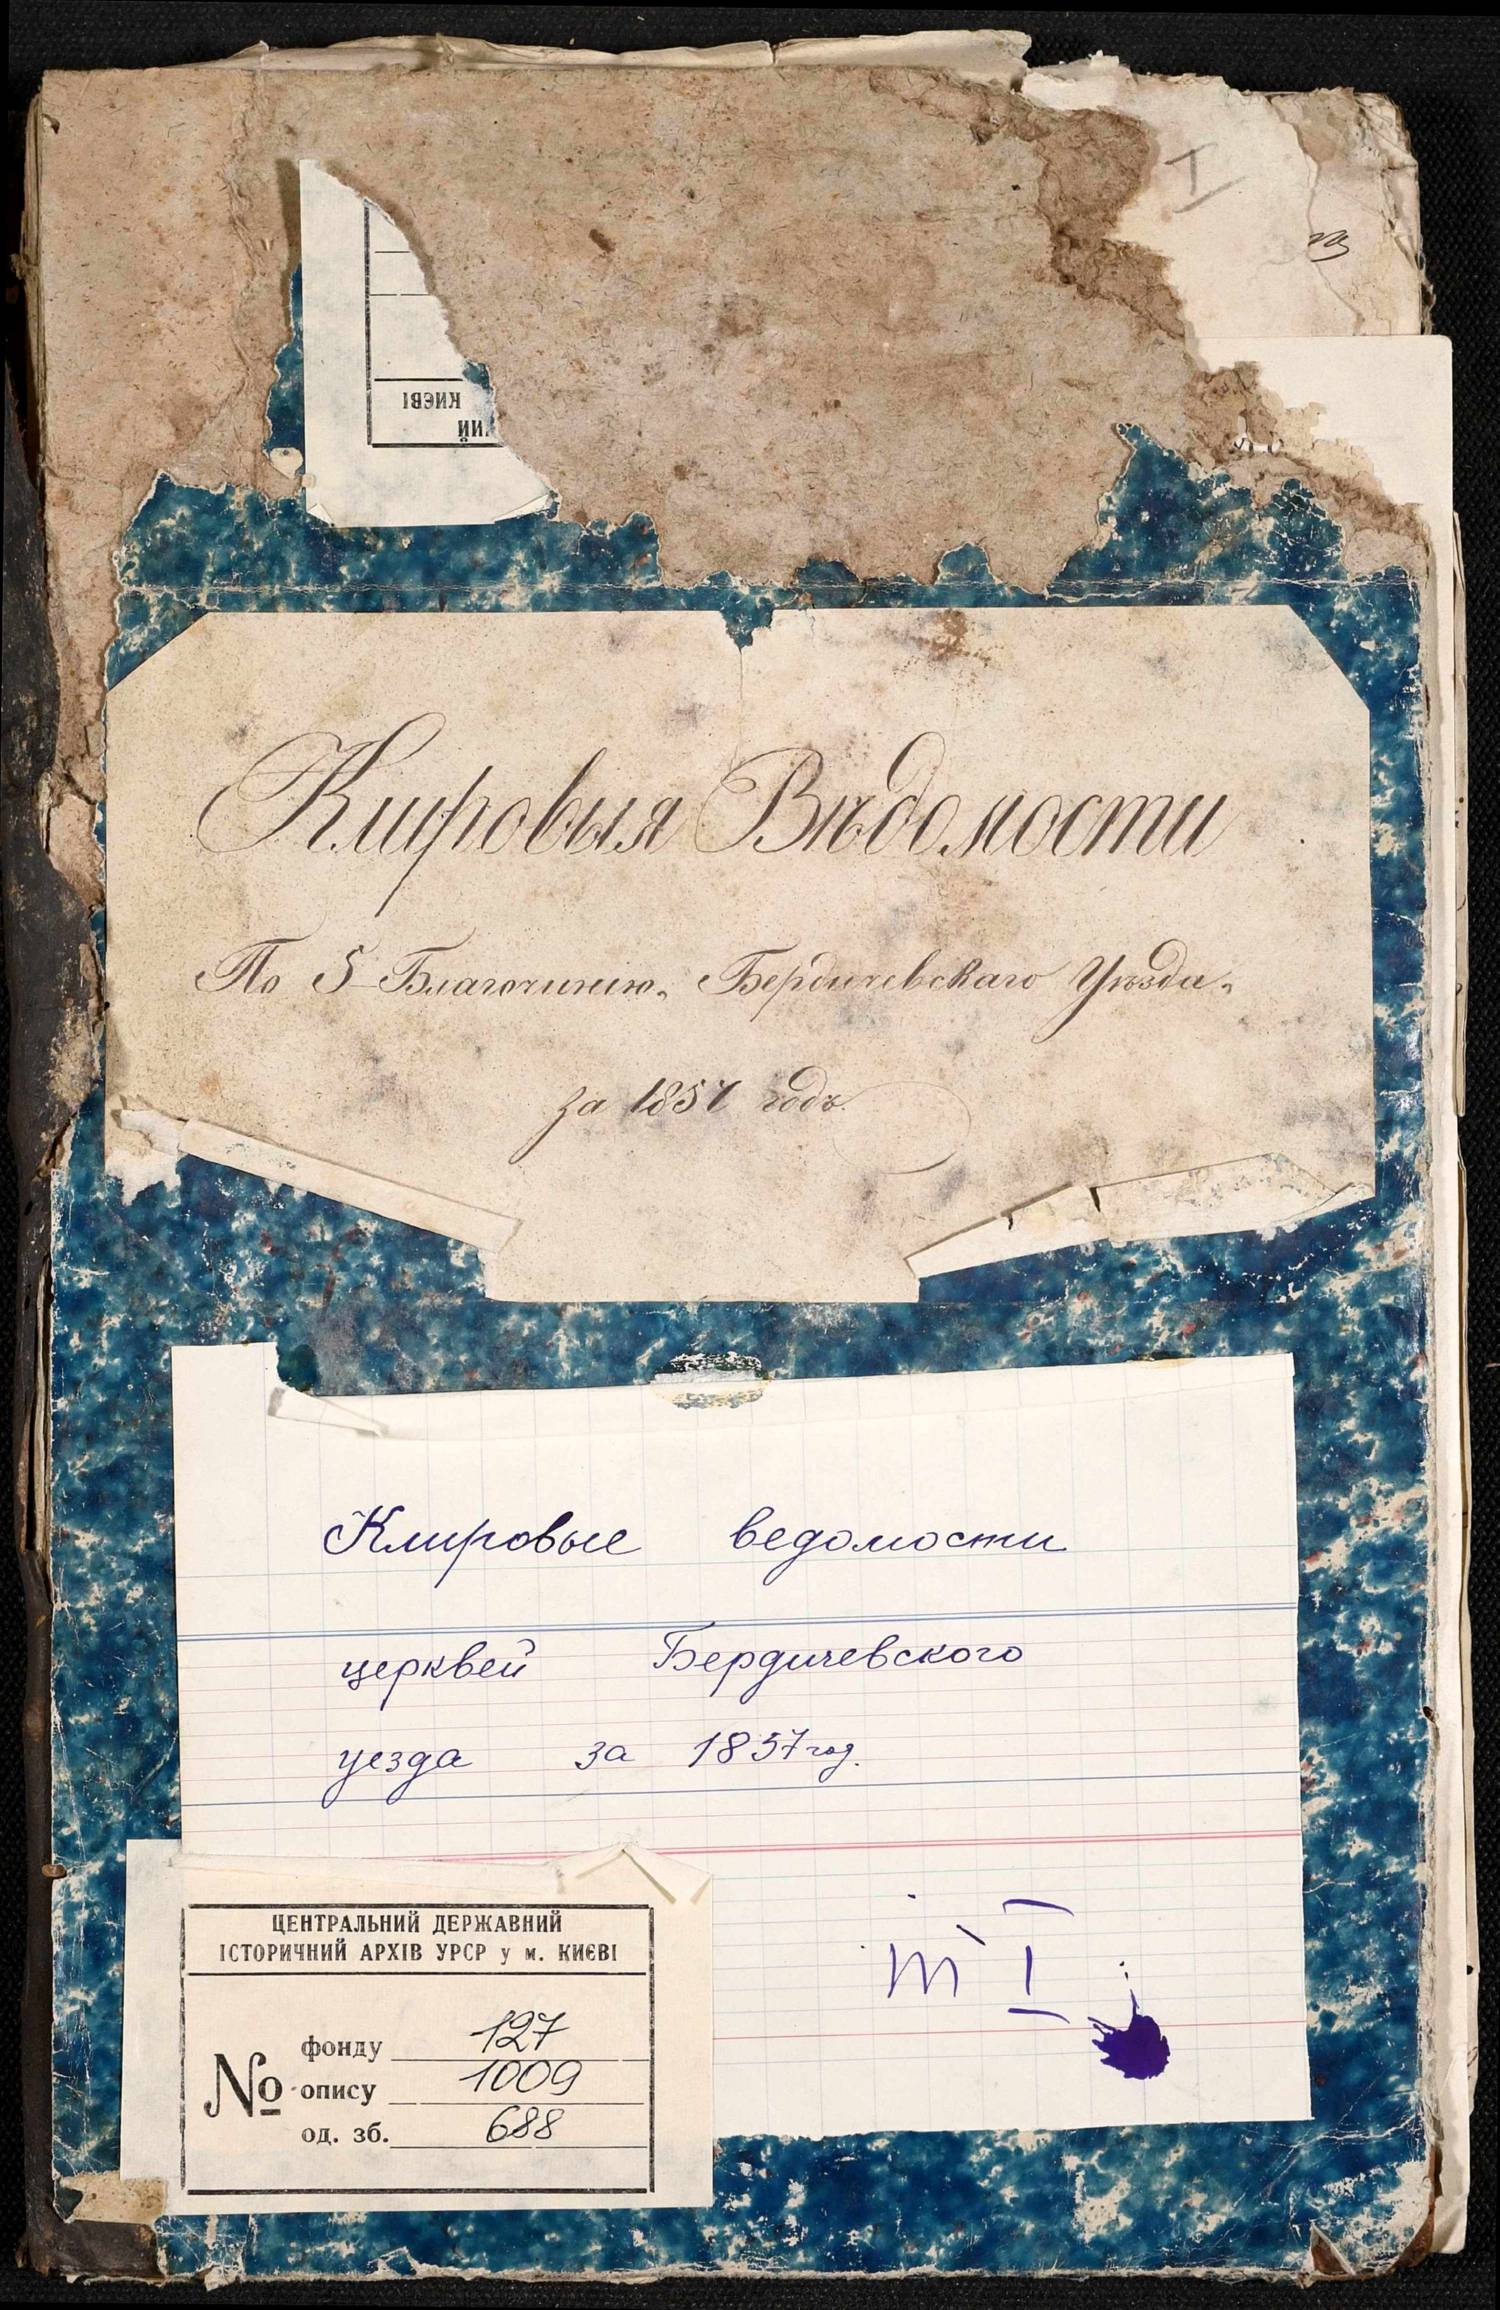 I
КИЄВІ
Клировыя Вѣдомости
По 5 Благочинію, Бердичевскаго Уѣзда,
за 1857 годъ.
Клировые ведомости
церквей Бердичевского
уезда за 1857 год.
т I
ЦЕНТРАЛЬНИЙ ДЕРЖАВНИЙ
ІСТОРИЧНИЙ АРХІВ УРСР у м. КИЄВІ
№ фонду 127
опису 1009
од. зб. 688